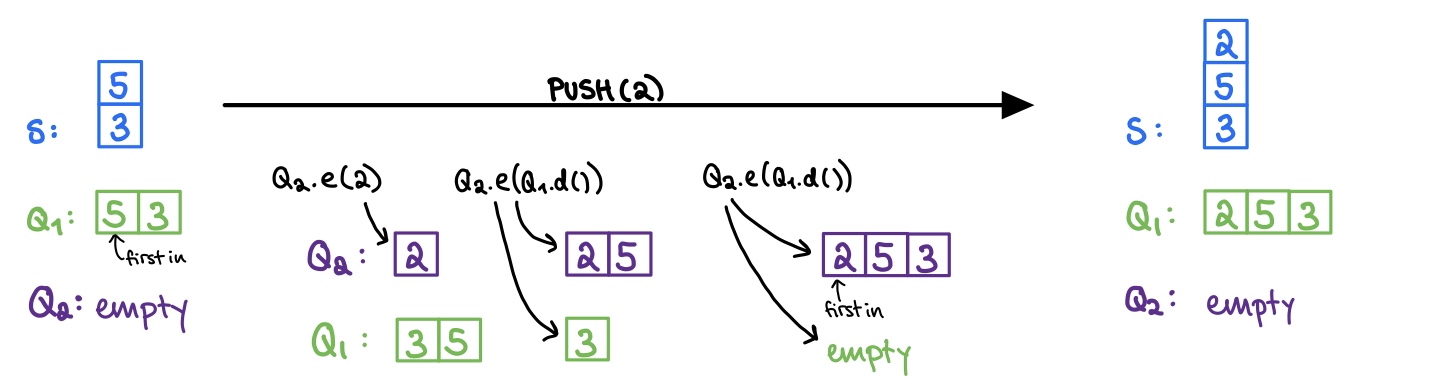 S:
5
3
Q1: 5 3
first in
Q2: empty
PUSH(2)
Q2.e(2)
Q2: 2
Q1: 3 5
Q2.e(Q1.d())
2 5
3
Q2.e(Q1.d())
2 5 3
first in
empty
S:
2
5
3
Q1: 2 5 3
Q2: empty